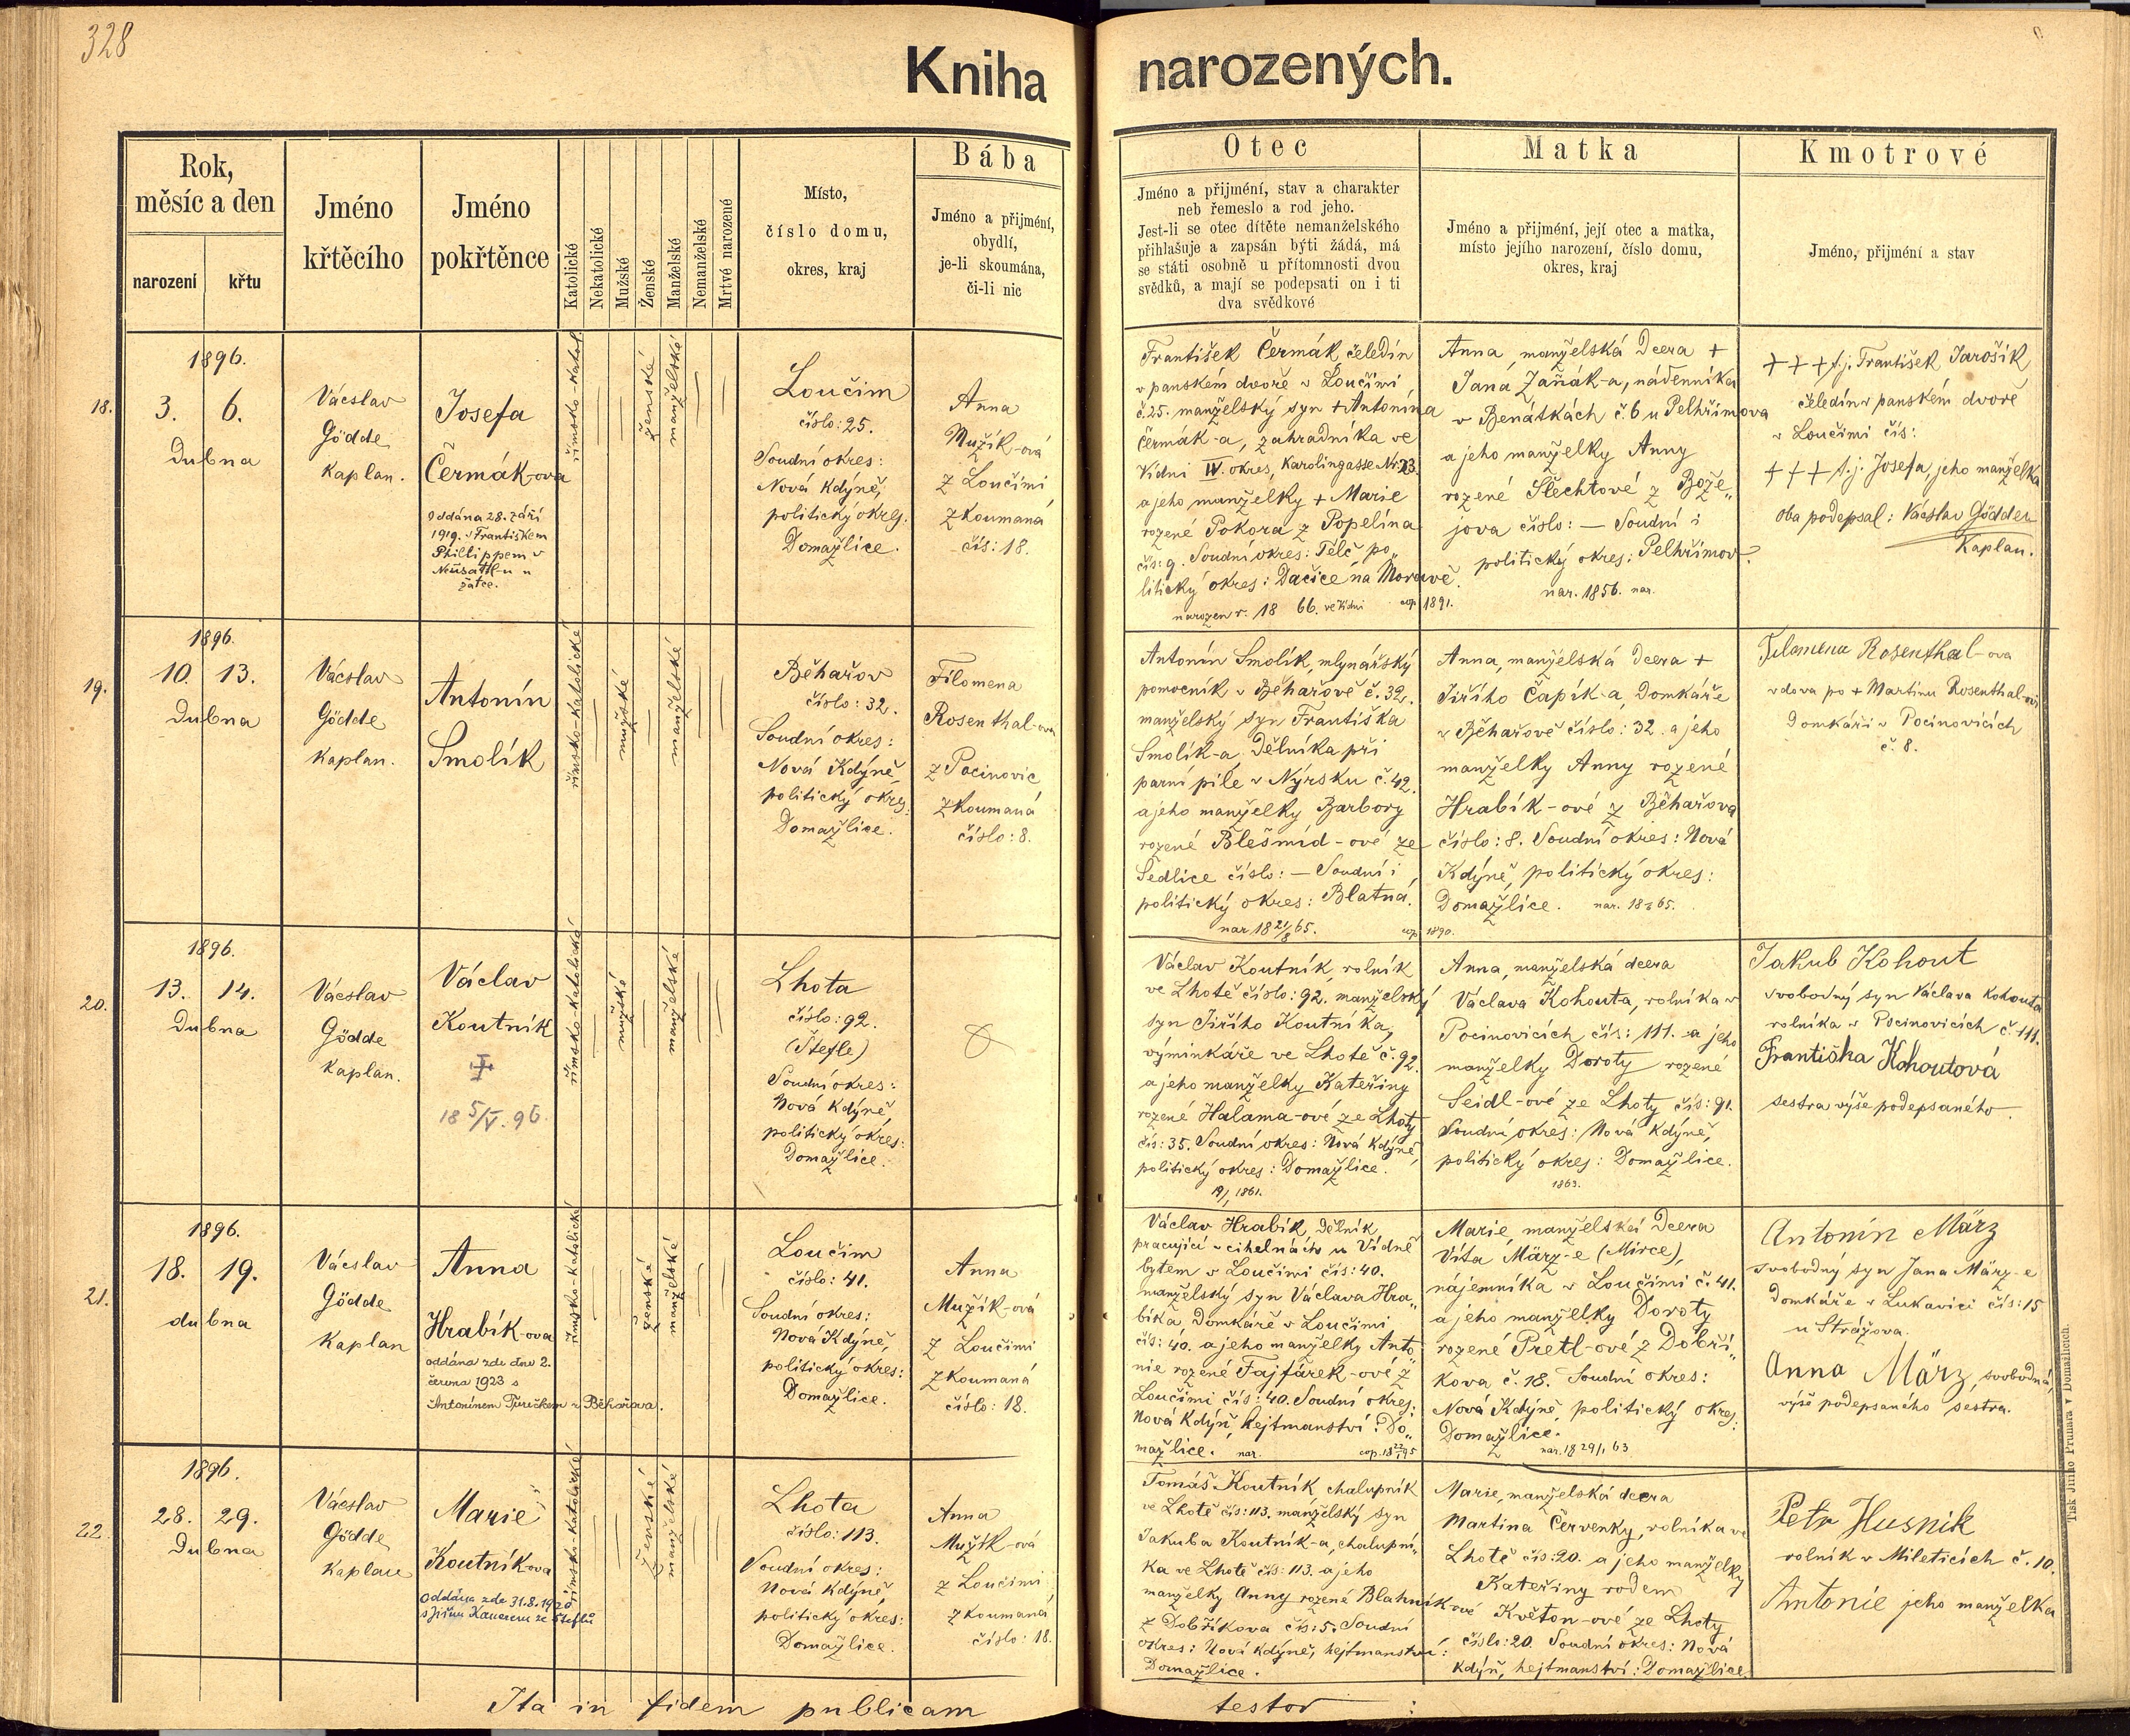 328
Kniha narozených.
Rok,
měsíc a den
narození
křtu
Jméno
křtěcího
Jméno
pokřtěnce
Katolické
Nekatolické
Mužské
Ženské
Manželské
Nemanželské
Mrtvé narozené
Místo,
číslo domu,
okres, kraj
Bába
Jméno a přijmění,
obydlí,
je-li skoumána,
či-li nic
Otec
Jméno a přijmění, stav a charakter
neb řemeslo a rod jeho.
Jest-li se otec dítěte nemanželského
přihlašuje a zapsán býti žádá, má
se státi osobně u přítomnosti dvou
svědků, a mají se podepsati on i ti
dva svědkové
Matka
Jméno a přijmění, její otec a matka,
místo jejího narození, číslo domu,
okres, kraj
Kmotrové
Jméno, přijmění a stav
18.
1896.
3. 6.
Dubna
Václav
Gödde
Kaplan.
Josefa
Čermák-ova
Oddána 28. září
1919. s Františkem
Phillippem v
u
žatce.
římsko-katol.
ženské
manželské
Loučim
číslo: 25.
Soudní okres:
Nová Kdýně,
politický okres:
Domažlice.
Anna
Mužík-ová
z Loučimi
zkoumaná
čís: 18.
František Čermák čeledín
v panském dvoře v Loučimi,
č. 25. manželský syn + Antonína
Čermák-a, zahradníka ve
Vídni IV. okres, Karolingasse Nr. 23.
a jeho manželky + Marie
rozené Pokora z Popelína
čís: 9. Soudní okres: Telč po„
litický okres: Dačice na Moravě.
narozen r. 18 66. ve Vídni cop. 1891.
Anna, manželská Dcera +
Jana Zaňák-a, nádenníka
v Benátkách č. 6 u Pelhřimova
a jeho manželky Anny
rozené Šlechtové z Bože„
jova číslo: — Soudní i
politický okres: Pelhřimov.
nar. 1856. nar.
+ + + t.j. František Jarošík
čeledín v panském dvoře
v Loučimi čís:
+ + + t.j. Josefa, jeho manželka
oba podepsal: Václav Gödde
Kaplan.
19.
1896.
10. 13.
Dubna
Václav
Gödde
Kaplan.
Antonín
Smolík
římsko-katolické
mužské
manželské
Běhařov
číslo: 32.
Soudní okres:
Nová Kdýně,
politický okres:
Domažlice.
Filomena
Rosenthal-ova
z Pocinovic
zkoumaná
číslo: 8.
Antonín Smolík, mlynářský
pomocník v Běhařově č. 32.
manželský syn Františka
Smolík-a, Dělníka při
parní pile v Nýrsku č. 42.
a jeho manželky Barbory
rozené Blešmíd-ové ze
Sedlice číslo: — Soudní i
politický okres: Blatná.
nar 18 21/8 65. cop. 1890.
Anna, manželská Dcera +
Jiřího Čapík-a, Domkáře
v Běhařově číslo: 32. a jeho
manželky Anny rozené
Hrabík-ové z Běhařova
číslo: 8. Soudní okres: Nová
Kdýně, politický okres:
Domažlice. nar. 18 65.
Filomena Rosenthal-ova
vdova po + Martinu Rosenthal-ovi
Domkáři v Pocinovicích
č. 8.
20.
1896.
13. 14.
Dubna
Václav
Gödde
Kaplan.
Václav
Koutník
18 5/V. 96
římsko-katolické
mužské
manželské
Lhota
číslo: 92.
(Štefle)
Soudní okres:
Nová Kdýně,
politický okres:
Domažlice.
Václav Koutník, rolník
ve Lhotě číslo: 92. manželský
syn Jiřího Koutníka,
výminkáře ve Lhotě č. 92.
a jeho manželky Kateřiny
rozené Halama-ové ze Lhoty
čís: 35. Soudní okres: Nová Kdýně,
politický okres: Domažlice.
19/1 1861.
Anna, manželská dcera
Václava Kohouta, rolníka v
Pocinovicích čís: 111. a jeho
manželky Doroty rozené
Seidl-ové ze Lhoty čís: 91.
Soudní okres: Nová Kdýně,
politický okres: Domažlice.
1863.
Jakub Kohout
svobodný syn Václava Kohouta
rolníka v Pocinovicích č. 111.
Františka Kohoutová
sestra výše podepsaného.
21.
1896.
18. 19.
dubna
Václav
Gödde
Kaplan
Anna
Hrabík-ova
oddána zde dne 2.
června 1923 s
Antonínem Turečkem z Běhařova.
římsko-katolické
ženské
manželské
Loučim
číslo: 41.
Soudní okres:
Nová Kdýně,
politický okres:
Domažlice.
Anna
Mužík-ová
z Loučimi
zkoumaná
číslo: 18.
Václav Hrabík, Dělník
pracující v cihelnách u Vídně
bytem v Loučimi čís: 40.
manželský syn Václava Hra„
bíka, Domkáře v Loučimi
čís: 40. a jeho manželky Anto„
nie rozené Fajfárek-ové z
Loučimi čís: 40. Soudní okres:
Nová Kdýň, hejtmanství: Do„
mažlice. nar. cop. 18 95
Marie, manželská Dcera
Víta März-e (Mirce),
nájemníka v Loučimi č. 41.
a jeho manželky Doroty
rozené Pretl-ové z Dobří„
kova č. 18. Soudní okres:
Nová Kdýně, politický okres:
Domažlice.
nar. 18 29/1 63
Antonín März
svobodný syn Jana März-e
Domkáře v Lukavici čís: 15
u Strážova.
Anna März, svobodná,
výše podepsaného sestra.
22.
1896.
28. 29.
Dubna
Václav
Gödde
Kaplan
Marie
Koutníkova
Oddána zde 31.8.1920
s Jiřím Kanerem ze Šteflů
římsko-katolické
Ženské
manželské
Lhota
číslo: 113.
Soudní okres:
Nová Kdýně
politický okres:
Domažlice.
Anna
Mužík-ová
z Loučimi
zkoumaná
číslo: 18.
Tomáš Koutník chalupník
ve Lhotě čís: 113. manželský syn
Jakuba Koutník-a, chalupní„
ka ve Lhotě čís: 113. a jeho
manželky Anny rozené Blahník-ové
z Dobříkova čís: 5. Soudní
okres: Nová Kdýně, hejtmanství:
Domažlice.
Marie, manželská dcera
Martina Červenky, rolníka ve
Lhotě čís: 20. a jeho manželky
Kateřiny rodem
Květon-ové ze Lhoty
číslo: 20. Soudní okres: Nová
Kdýň, hejtmanství: Domažlice.
Petr Husnik
rolník v Mileticích č. 10.
Antonie jeho manželka
Ita in fidem publicam testor :
Tisk Jiřího Prunara v Domažlicích.